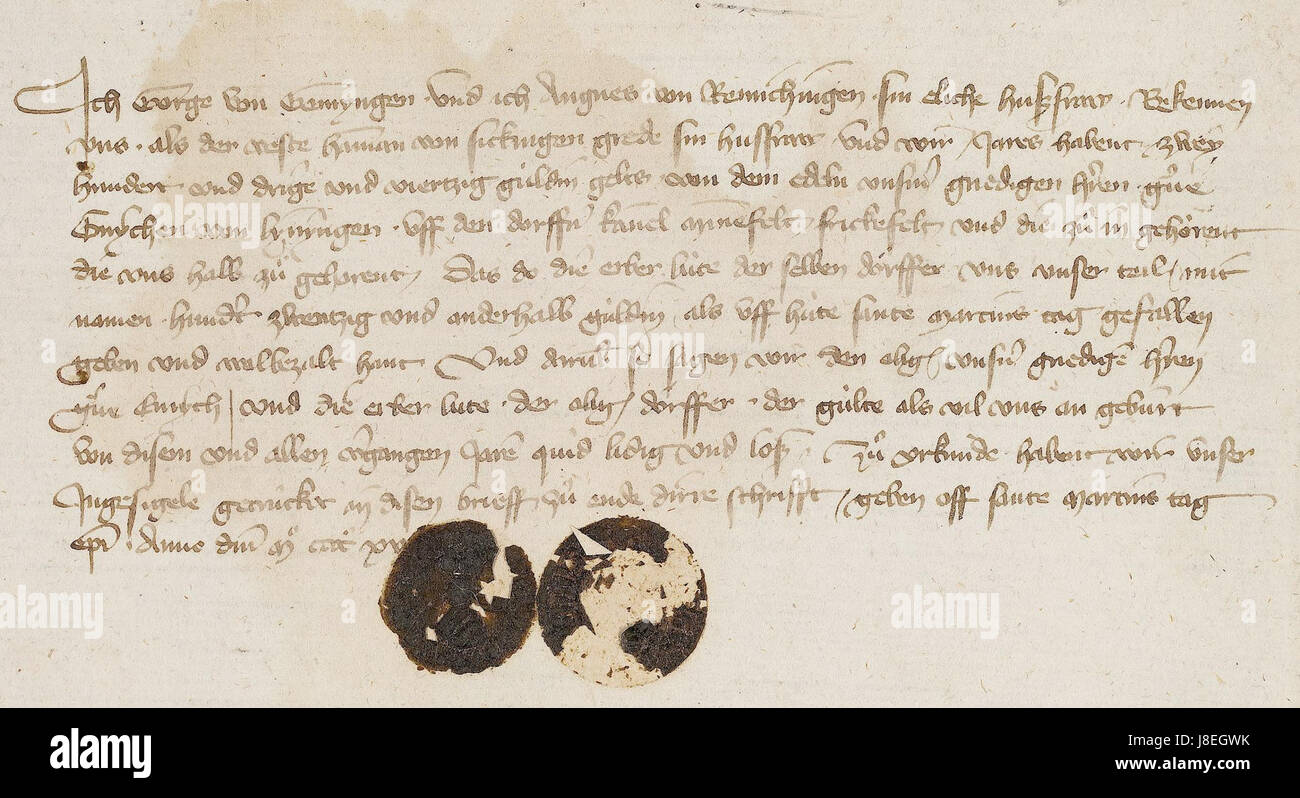 Ich George von Gemyngen und ich Angnes von Remichingen sin eliche husfraw Bekennen
uns als der veste Hanman von Sickingen grede sin husfraw und wir Jares habent zwey
hundert und drige und viertzig guldin gelts von dem edeln unserm gnedigen h'ren g've
Emychen von Lyningen uff den dorffern mynnefelt frickefelt und die zu in gehorent
die uns halb zu gehorent Das do die erber lute der selben dorffer uns unser teil mit
namen hund't zwentzig und anderhalb guldin als uff hute sante martins tag gefallen
geben und wolbezalt hant Und sagen wir den obg unserm gnedigen h'ren
g've Emych und die erber lute der obg dorffer der gulte als vil uns an geburt
von disem und allen v'gangen Jaren quid lidig und los Zu urkunde habent wir unser
Ingesigele getruckt in disen brieff zu ende dirre schrifft geben uff sante martins tag
ep̄i Anno dm̄ mº xv
alamy
J8EGWK
www.alamy.com